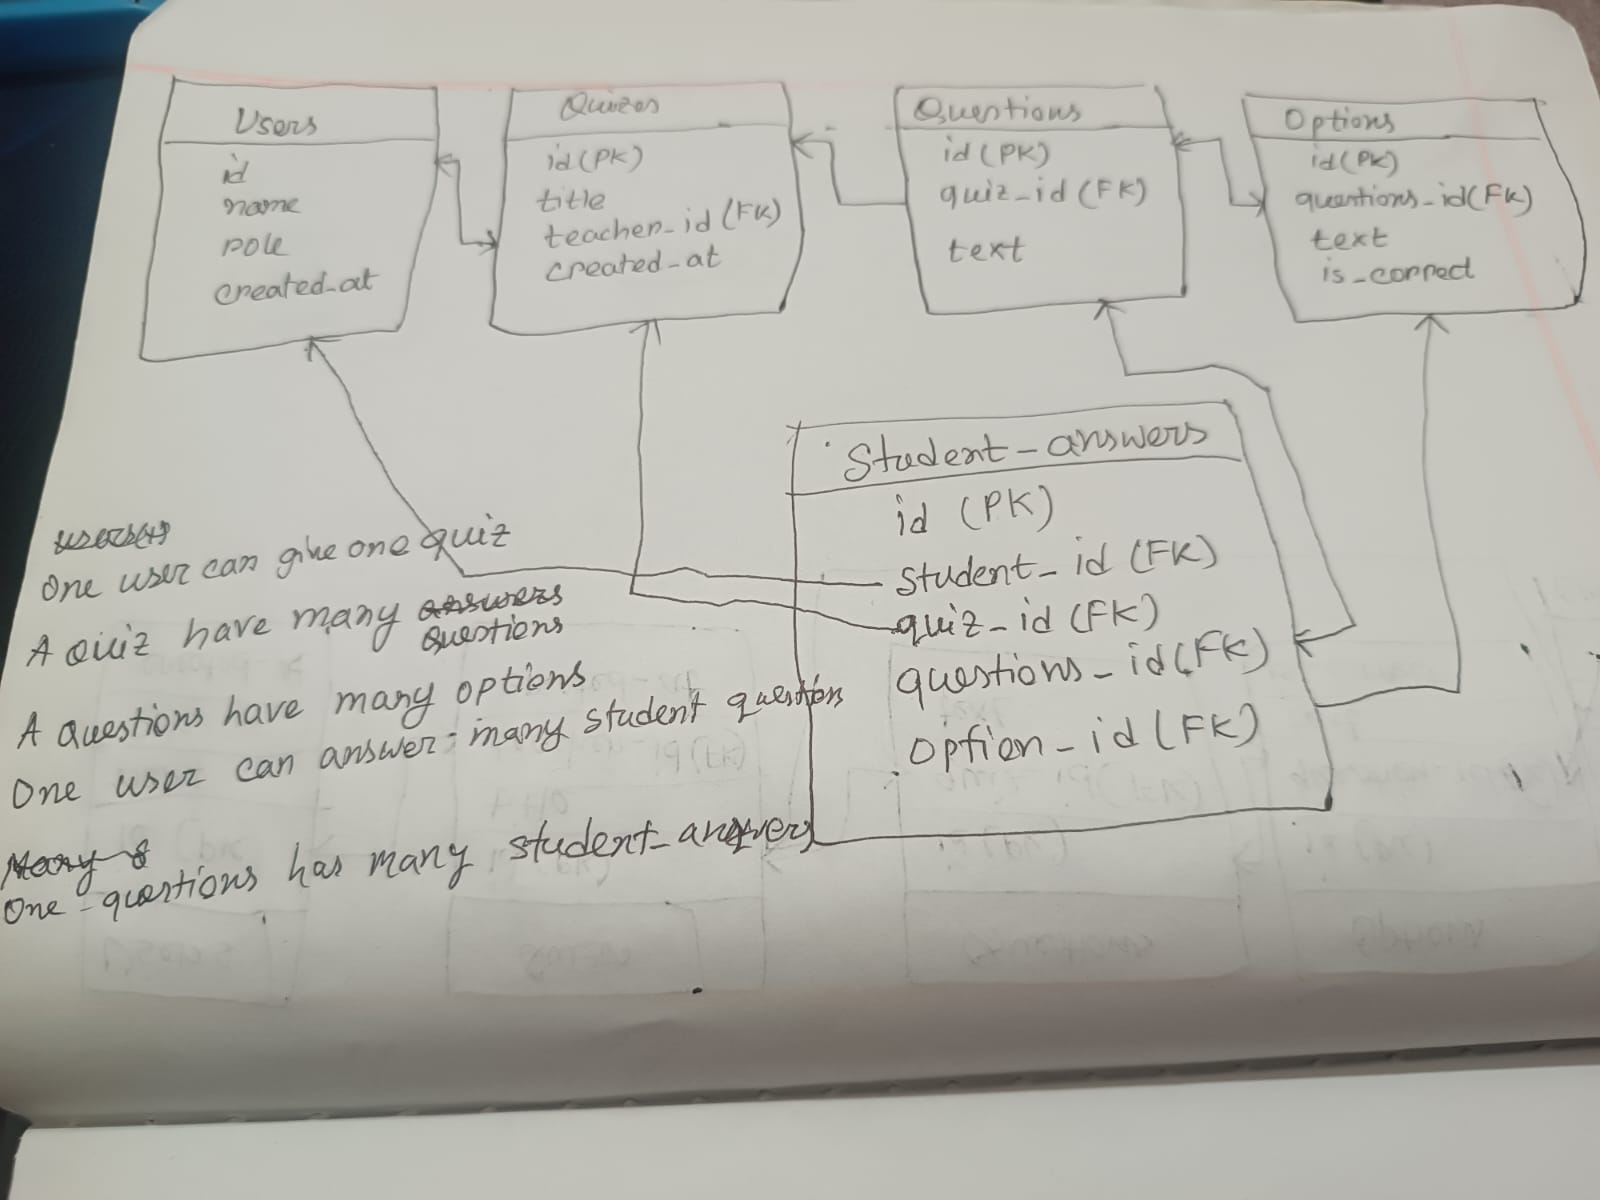 Users
id
name
role
created_at
Quizes
id (PK)
title
teacher_id (FK)
created_at
Questions
id (PK)
quiz_id (FK)
text
Options
id (PK)
questions_id (FK)
text
is_correct
Student_answers
id (PK)
student_id (FK)
quiz_id (FK)
questions_id (FK)
option_id (FK)
One user can give one quiz
A Quiz have many answers
Questions
A questions have many options
One user can answer many student questions
Many
One questions has many student_answers